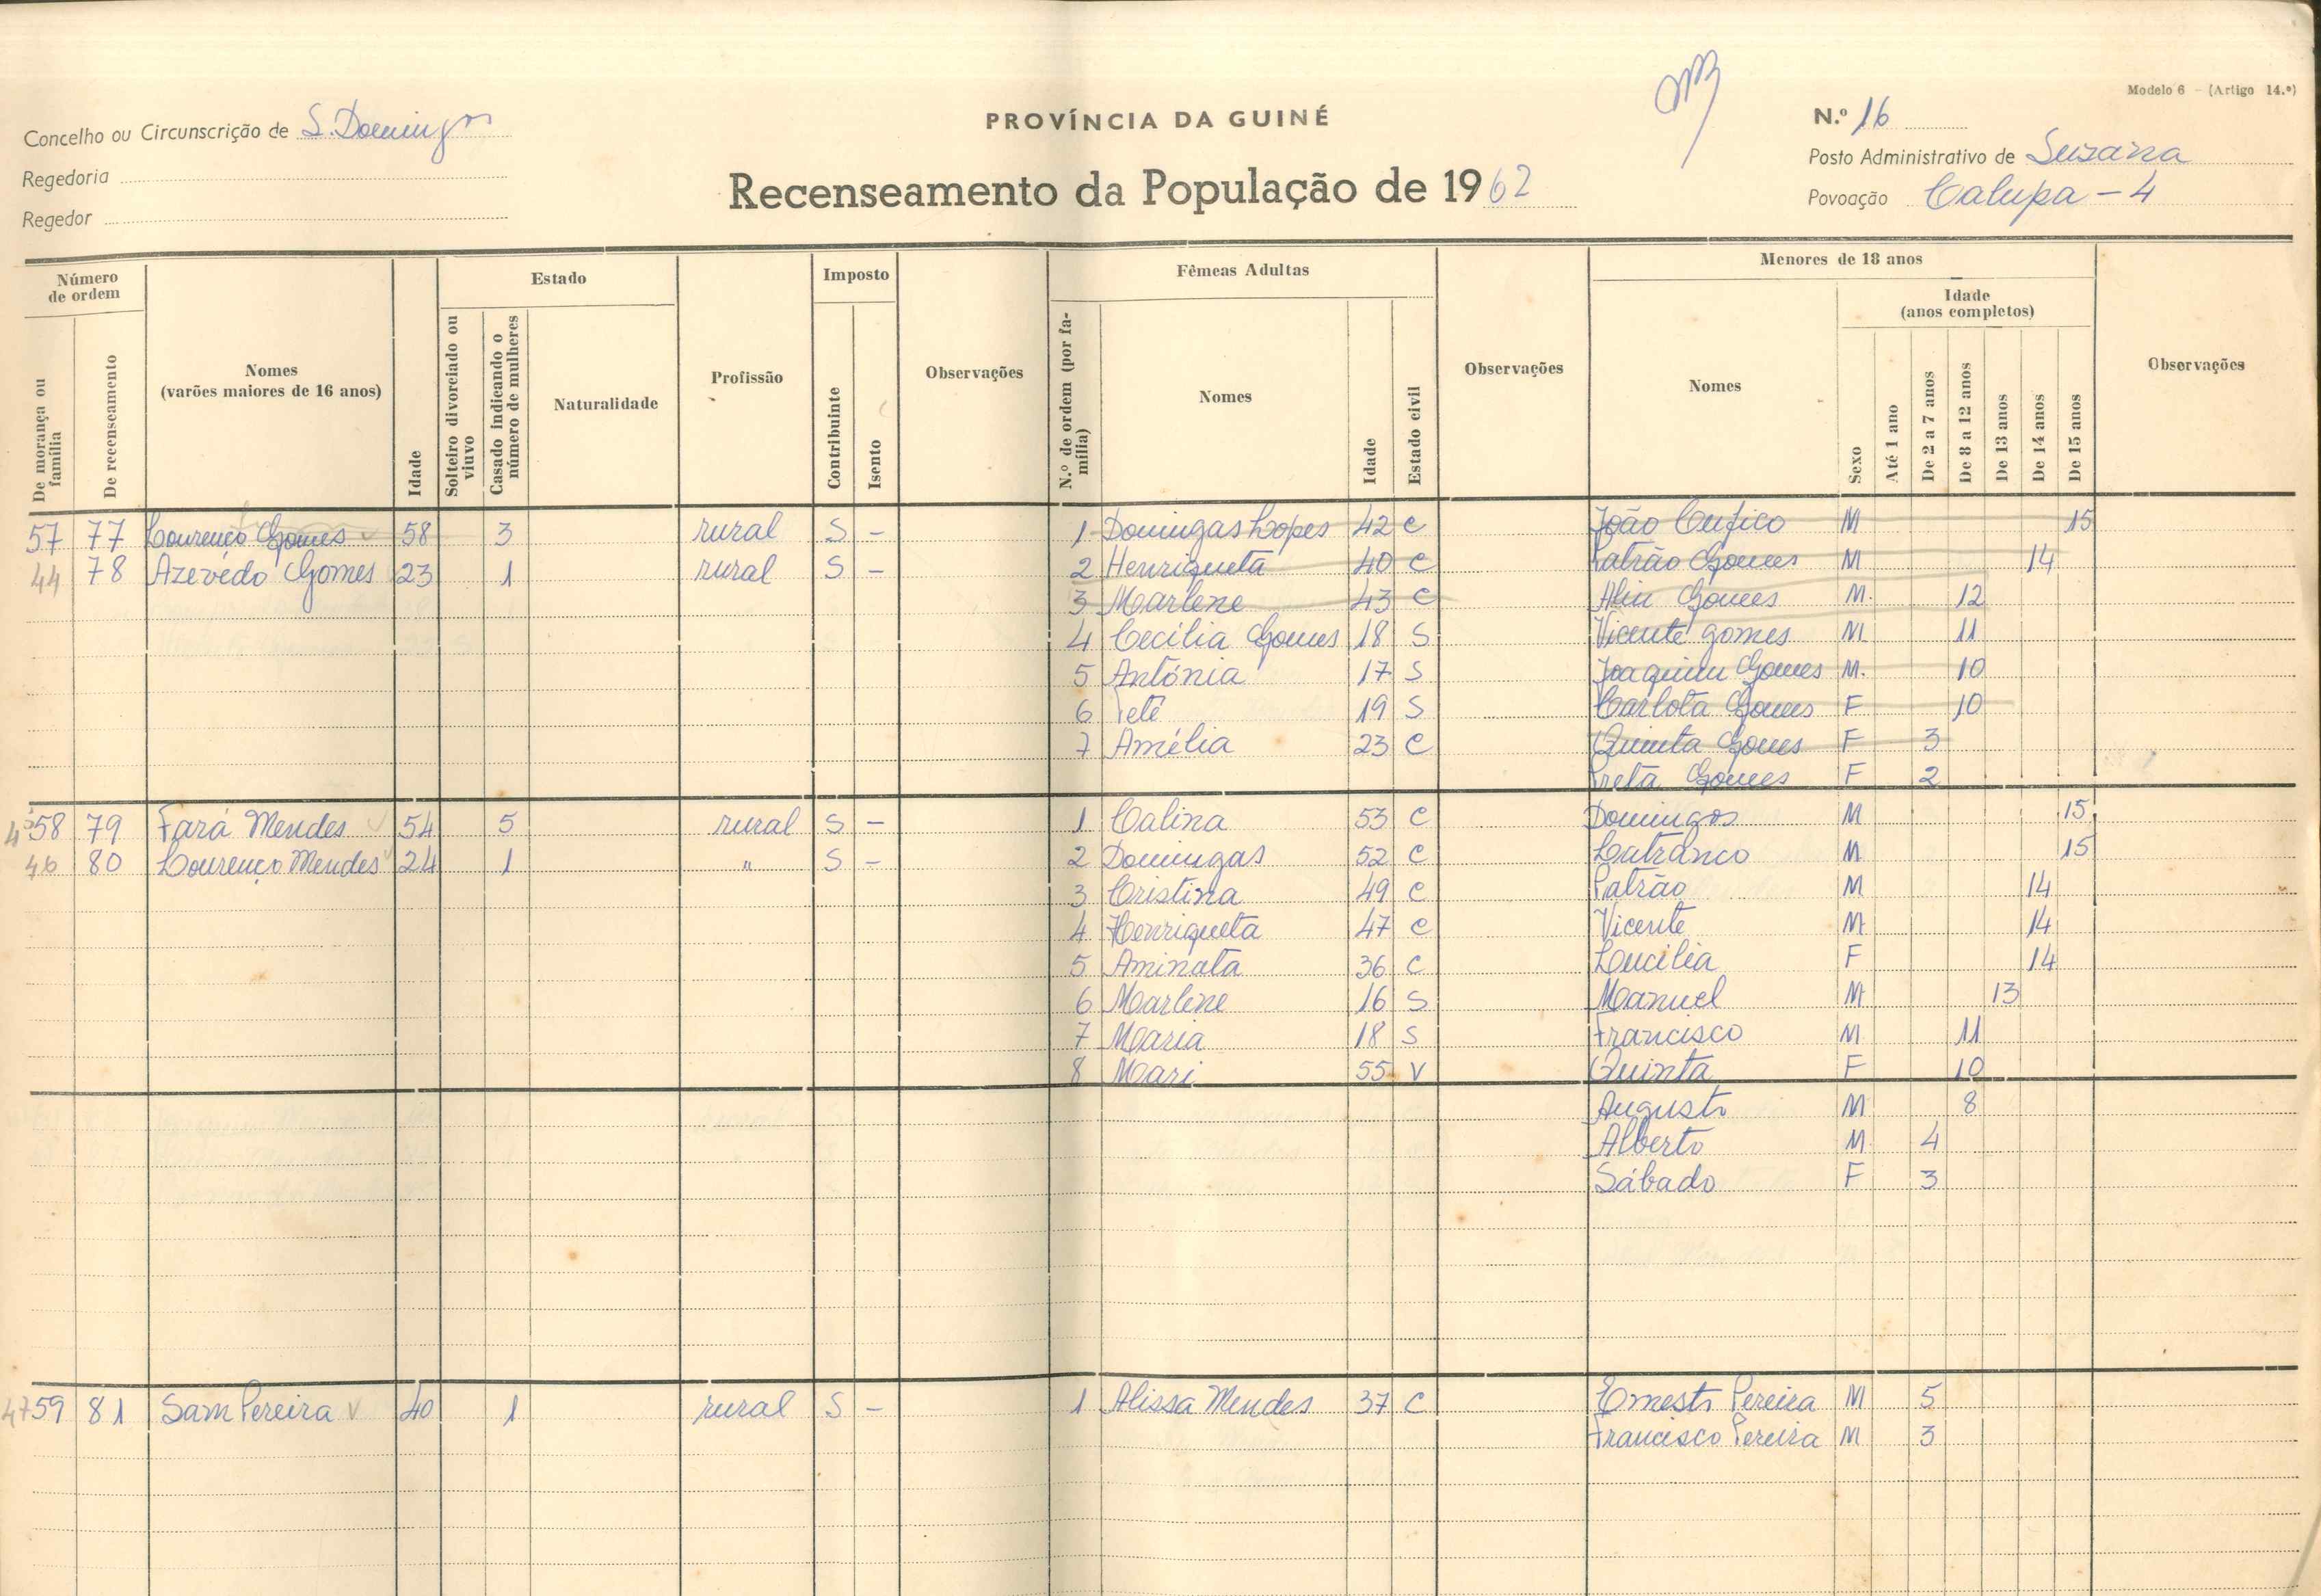 Modelo 6 - (Artigo 14.º)
Concelho ou Circunscrição de S. Domingos
PROVÍNCIA DA GUINÉ
N.º 16
Regedoria
Recenseamento da População de 1962
Posto Administrativo de Suzana
Regedor
Povoação Calupa - 4
Número de ordem
De morança ou família
De recenseamento
Nomes
(varões maiores de 16 anos)
Idade
Estado
Solteiro divorciado ou viuvo
Casado indicando o número de mulheres
Naturalidade
Profissão
Imposto
Contribuinte
Isento
Observações
Fêmeas Adultas
N.º de ordem (por família)
Nomes
Idade
Estado civil
Observações
Menores de 18 anos
Nomes
Sexo
Idade
(anos completos)
Até 1 ano
De 2 a 7 anos
De 8 a 12 anos
De 13 anos
De 14 anos
De 15 anos
Observações
57 77 Lourenço Gomes 58 3 rural S - 1 Domingas Lopes 42 C João Cufico M 15
44 78 Azevedo Gomes 23 1 rural S - 2 Henriqueta 40 C Patrão Gomes M 14
3 Marlene 43 C Gomes M. 12
4 Cecília Gomes 18 S Vicente Gomes M 11
5 Antónia 17 S Joaquim Gomes M. 10
6 Teté 19 S Carlota Gomes F 10
7 Amélia 23 C Quinta Gomes F 3
Preta Gomes F 2
58 79 Fará Mendes 54 5 rural S - 1 Calina 53 C Domingos M 15
46 80 Lourenço Mendes 24 1 " S - 2 Domingas 52 C Lutranco M 15
3 Cristina 49 C Patrão M 14
4 Henriqueta 47 C Vicente M 14
5 Aminata 36 C Lucília F 14
6 Marlene 16 S Manuel M 13
7 Maria 18 S Francisco M 11
8 Mari 55 V Quinta F 10
Augusto M 8
Alberto M 4
Sábado F 3
47 59 81 Sam Pereira 40 1 rural S - 1 Alissa Mendes 37 C Ernesto Pereira M 5
Francisco Pereira M 3